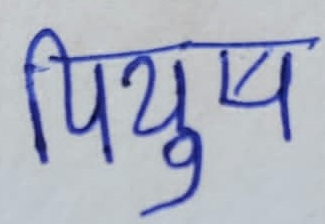 पियुष